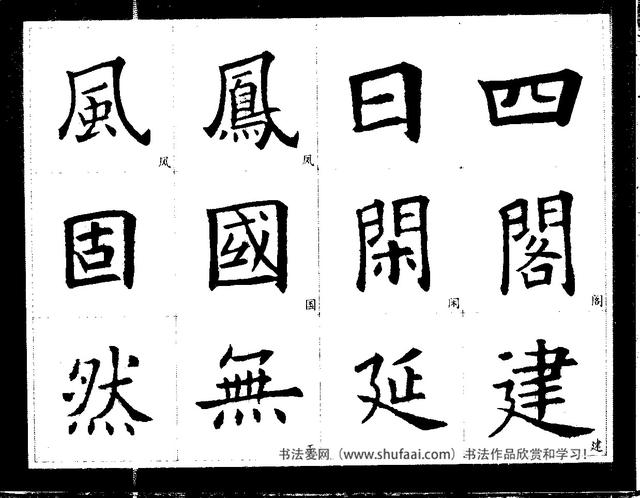 四日鳳風
凤 风
閣閑國固
阁 闲 国
建延無然
建 无
书法爱网（www.shufaai.com）书法作品欣赏和学习！